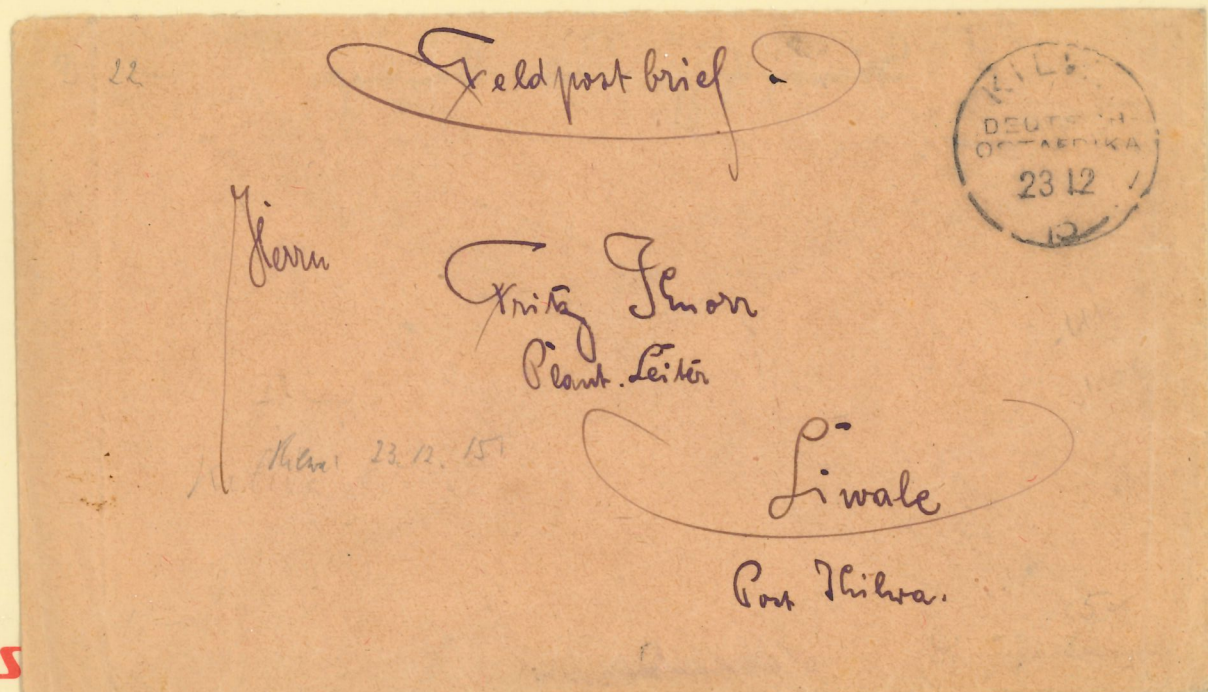 22
Feldpostbrief.
DEUTSCH-
OSTAFRIKA
23 12
Herrn
Fritz Knorr
Plant. Leiter
23.12.15.
Liwale
Post Kilwa.